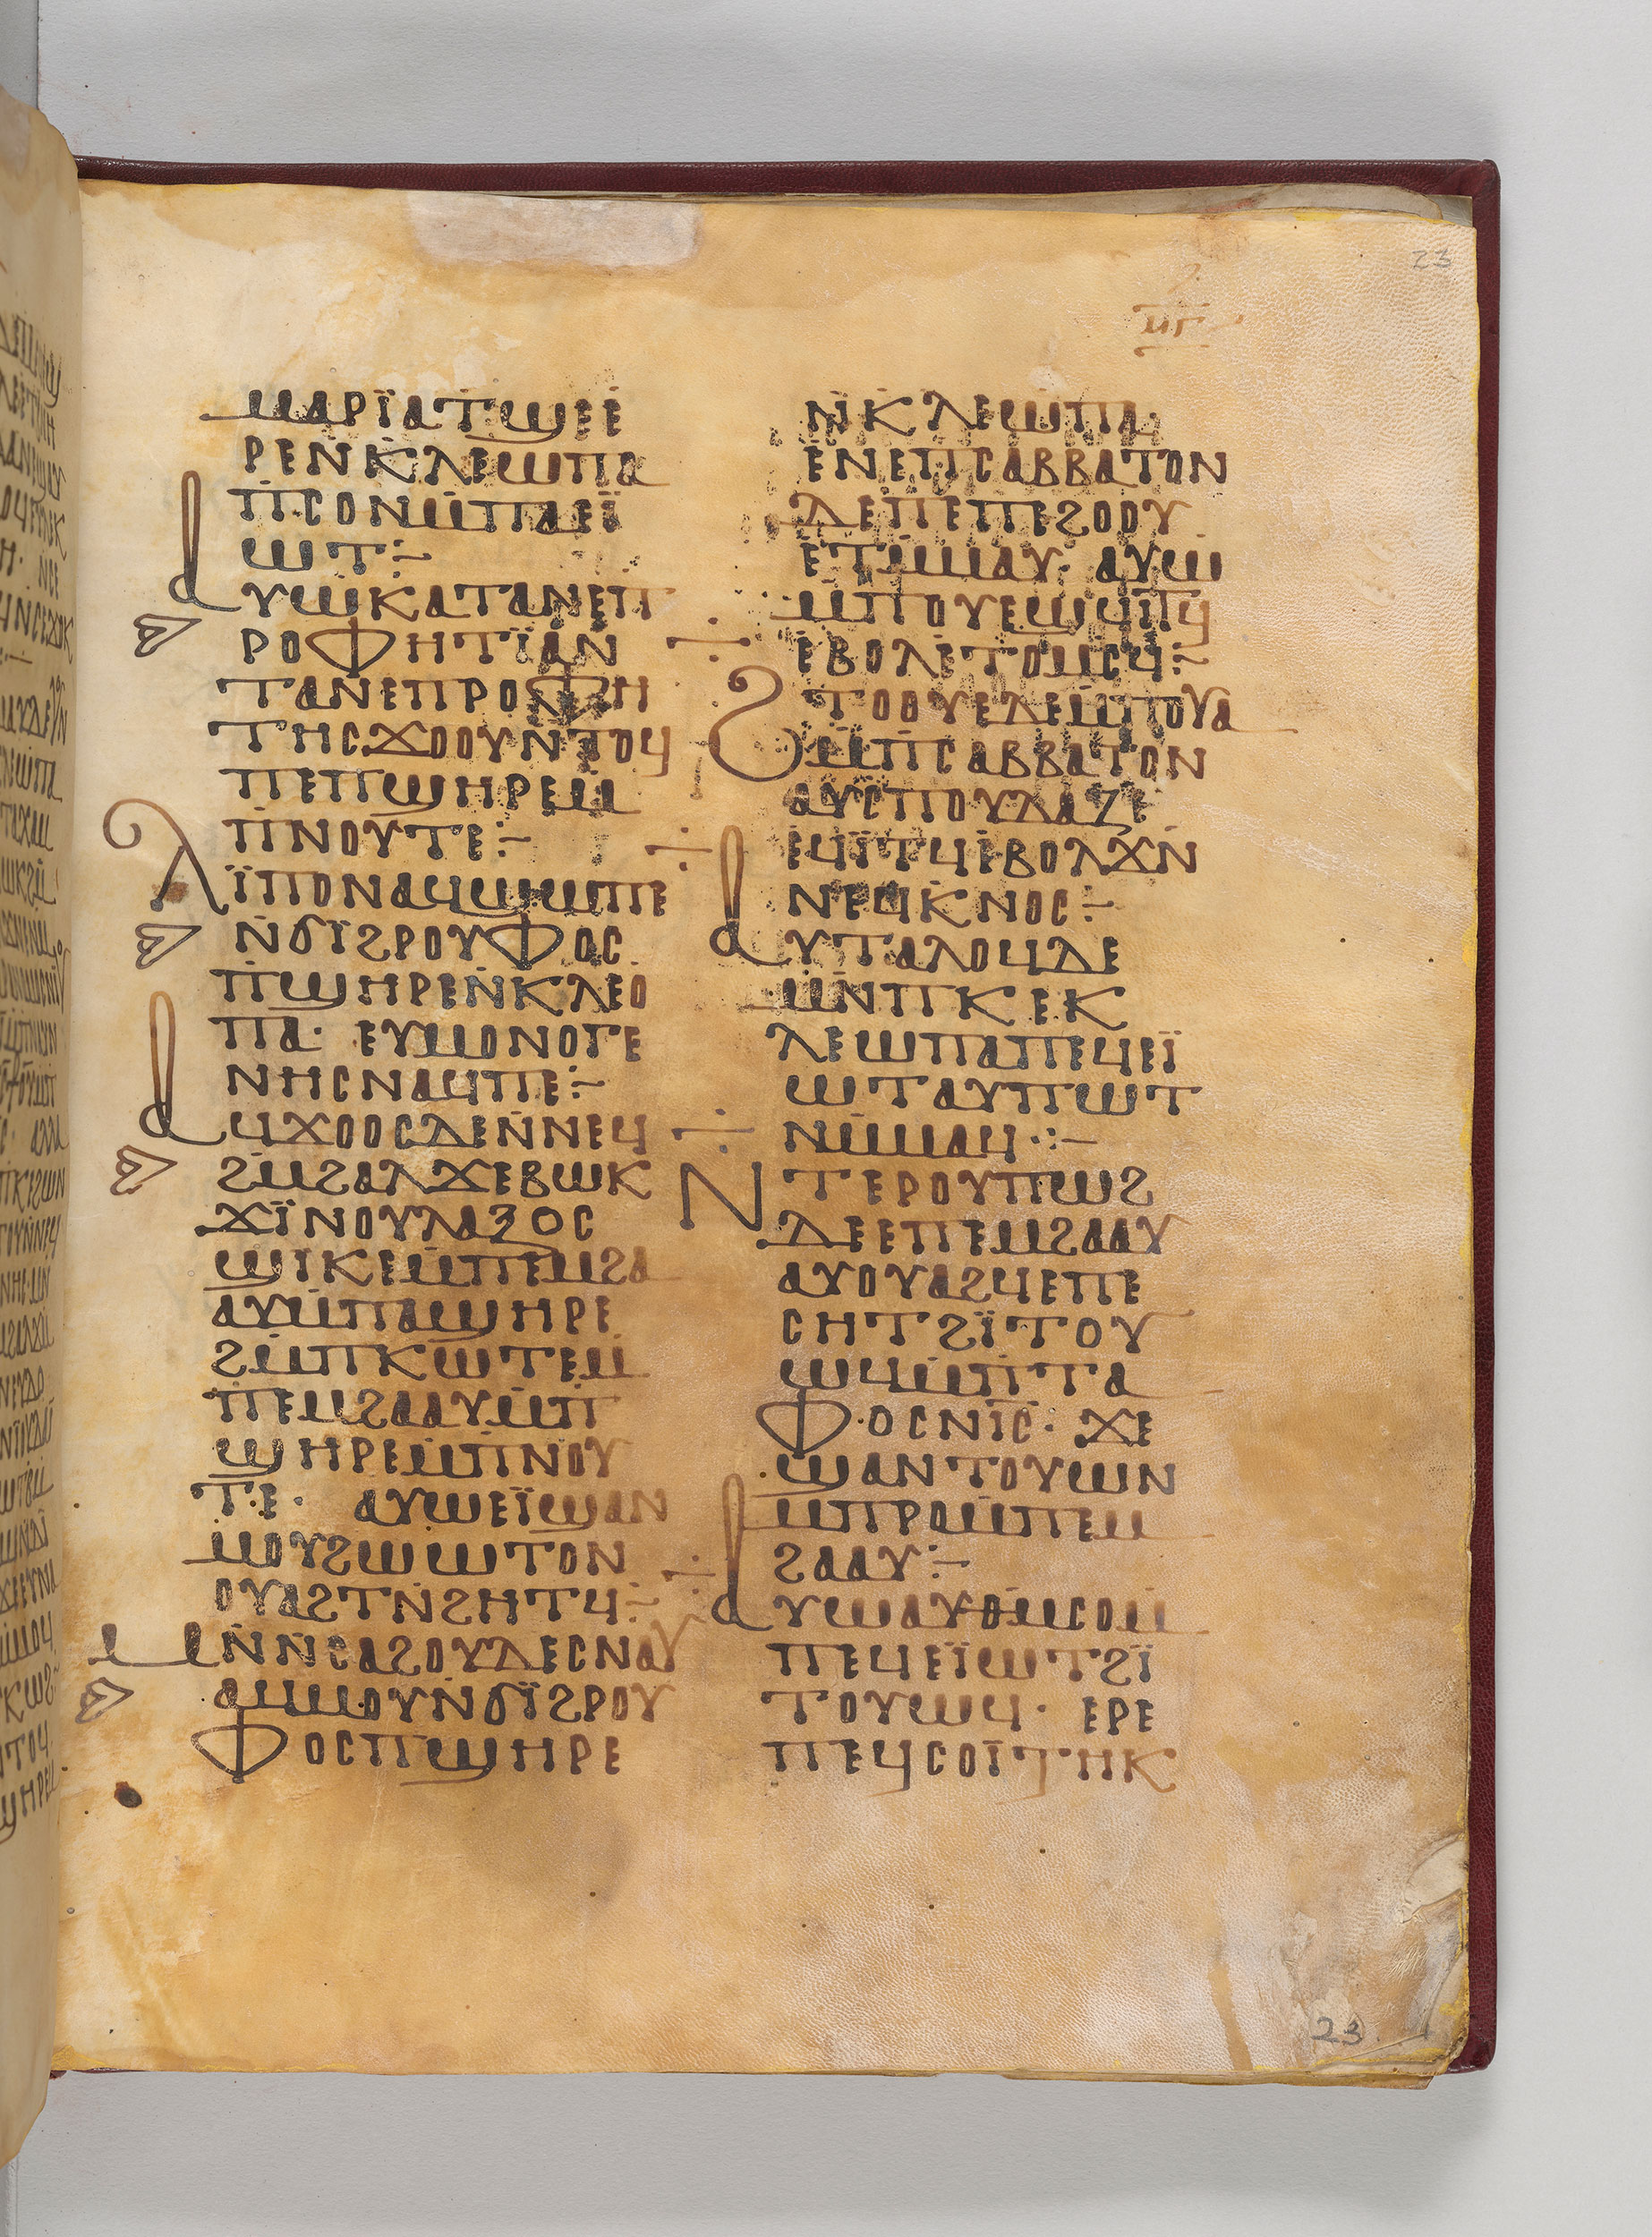 23
ⲙⲅ
ⲙⲁⲣⲓ̈ⲁⲧϣⲉⲉ
ⲣⲉⲛⲕⲗⲉⲱⲡⲁ
ⲡ̇ⲥⲟⲛⲙ̇ⲡⲁⲉⲓ̈
ⲱⲧ:~
ⲁⲩⲱⲕⲁⲧⲁⲛⲉⲡ
ⲣⲟⲫⲏⲧⲓ̈ⲁⲛ
ⲧⲁⲛⲉⲡⲣⲟⲫⲏ
ⲧⲏⲥϫⲟⲟⲩⲛ̇ⲧⲟϥ
ⲡⲉⲡϣⲏⲣⲉⲙ̇
ⲡ̇ⲛⲟⲩⲧⲉ:~
ⲗⲓ̈ⲡⲟⲛⲁϥϣⲱⲡⲉ
ⲛ̇ϭⲓ̈ϩⲣⲟⲩⲫⲟⲥ
ⲡ̇ϣⲏⲣⲉⲛ̇ⲕⲗⲉⲟ
ⲡⲁ· ⲉⲩⲙⲟⲛⲟⲅⲉ
ⲛⲏⲥⲛⲁϥⲡⲉ:~
ⲁϥϫⲟⲟⲥⲇⲉⲛ̇ⲛⲉϥ
ϩⲙ̇ϩⲁⲗϫⲉⲃⲱⲕ
ϫⲓ̈ⲛⲟⲩⲗⲁⲝⲟⲥ
ϣⲓⲕⲉⲙ̇ⲡⲉⲙϩⲁ
ⲁⲩⲙ̇ⲡⲁϣⲏⲣⲉ
ϩⲙ̇ⲡⲕⲱⲧⲉⲙ̇
ⲡⲉⲙϩⲁⲁⲩⲙ̇ⲡ̇
ϣⲏⲣⲉⲙ̇ⲡ̇ⲛⲟⲩ
ⲧⲉ· ⲁⲩⲱⲉⲓ̈ϣⲁⲛ
ⲙⲟⲩϩⲱⲱⲧⲟⲛ
ⲟⲩⲁϩⲧⲛ̇ϩⲏⲧϥ̇:~
ⲙⲛ̇ⲛ̇ⲥⲁϩⲟⲩⲇⲉⲥⲛⲁⲩ
ⲁϥⲙⲟⲩⲛ̇ϭⲓ̈ϩⲣⲟⲩ
ⲫⲟⲥⲡϣⲏⲣⲉ
ⲛ̇ⲕⲗⲉⲱⲡⲁ
ⲉⲛⲉⲡⲥⲁⲃⲃⲁⲧⲟⲛ
ⲇⲉⲡⲉⲡⲉϩⲟⲟⲩ
ⲉⲧⲙ̇ⲙⲁⲩ· ⲁⲩⲱ
ⲙ̇ⲡⲟⲩⲉϣϥⲓⲧϥ
ⲉⲃⲟⲗⲉⲧⲟⲙⲥϥ:~
ϩⲧⲟⲟⲩⲉⲇⲉⲙ̇ⲡⲟⲩⲁ
ⲙ̇ⲡ̇ⲥⲁⲃⲃⲁⲧⲟⲛ
ⲁⲩⲥⲡⲟⲩⲇⲁⲍⲉ
ⲉϥⲓ̈ⲧϥⲉⲃⲟⲗϫⲛ̇
ⲛⲉϥⲕⲛⲟⲥ:~
ⲁⲩⲧⲁⲗⲟϥⲇⲉ
ⲙⲛ̇ⲡⲕⲉⲕ
ⲗⲉⲱⲡⲁⲡⲉϥⲉⲓ̈
ⲱⲧⲁⲩⲡⲱⲧ
ⲛⲙ̇ⲙⲁϥ·:~
ⲛⲧⲉⲣⲟⲩⲡⲱϩ
ⲇⲉⲉⲡⲉⲙϩⲁⲁⲩ
ⲁⲩⲟⲩⲁϩϥⲉⲡⲉ
ⲥⲏⲧϩⲓ̈ⲧⲟⲩ
ⲱϥⲙ̇ⲡ̇ⲧⲁ
ⲫⲟⲥⲛ̇ⲓⲥ· ϫⲉ
ϣⲁⲛⲧⲟⲩⲱⲛ
ⲙ̇ⲡⲣⲟⲙ̇ⲡⲉⲙ
ϩⲁⲁⲩ:~
ⲁⲩⲱⲁⲩϭⲙ̇ϭⲟⲙ̇
ⲡⲉϥⲉⲓ̈ⲱⲧϩⲓ̈
ⲧⲟⲩⲱϥ· ⲉⲣⲉ
ⲡⲉϥⲥⲟⲓ̈ⲧⲏⲕ
23